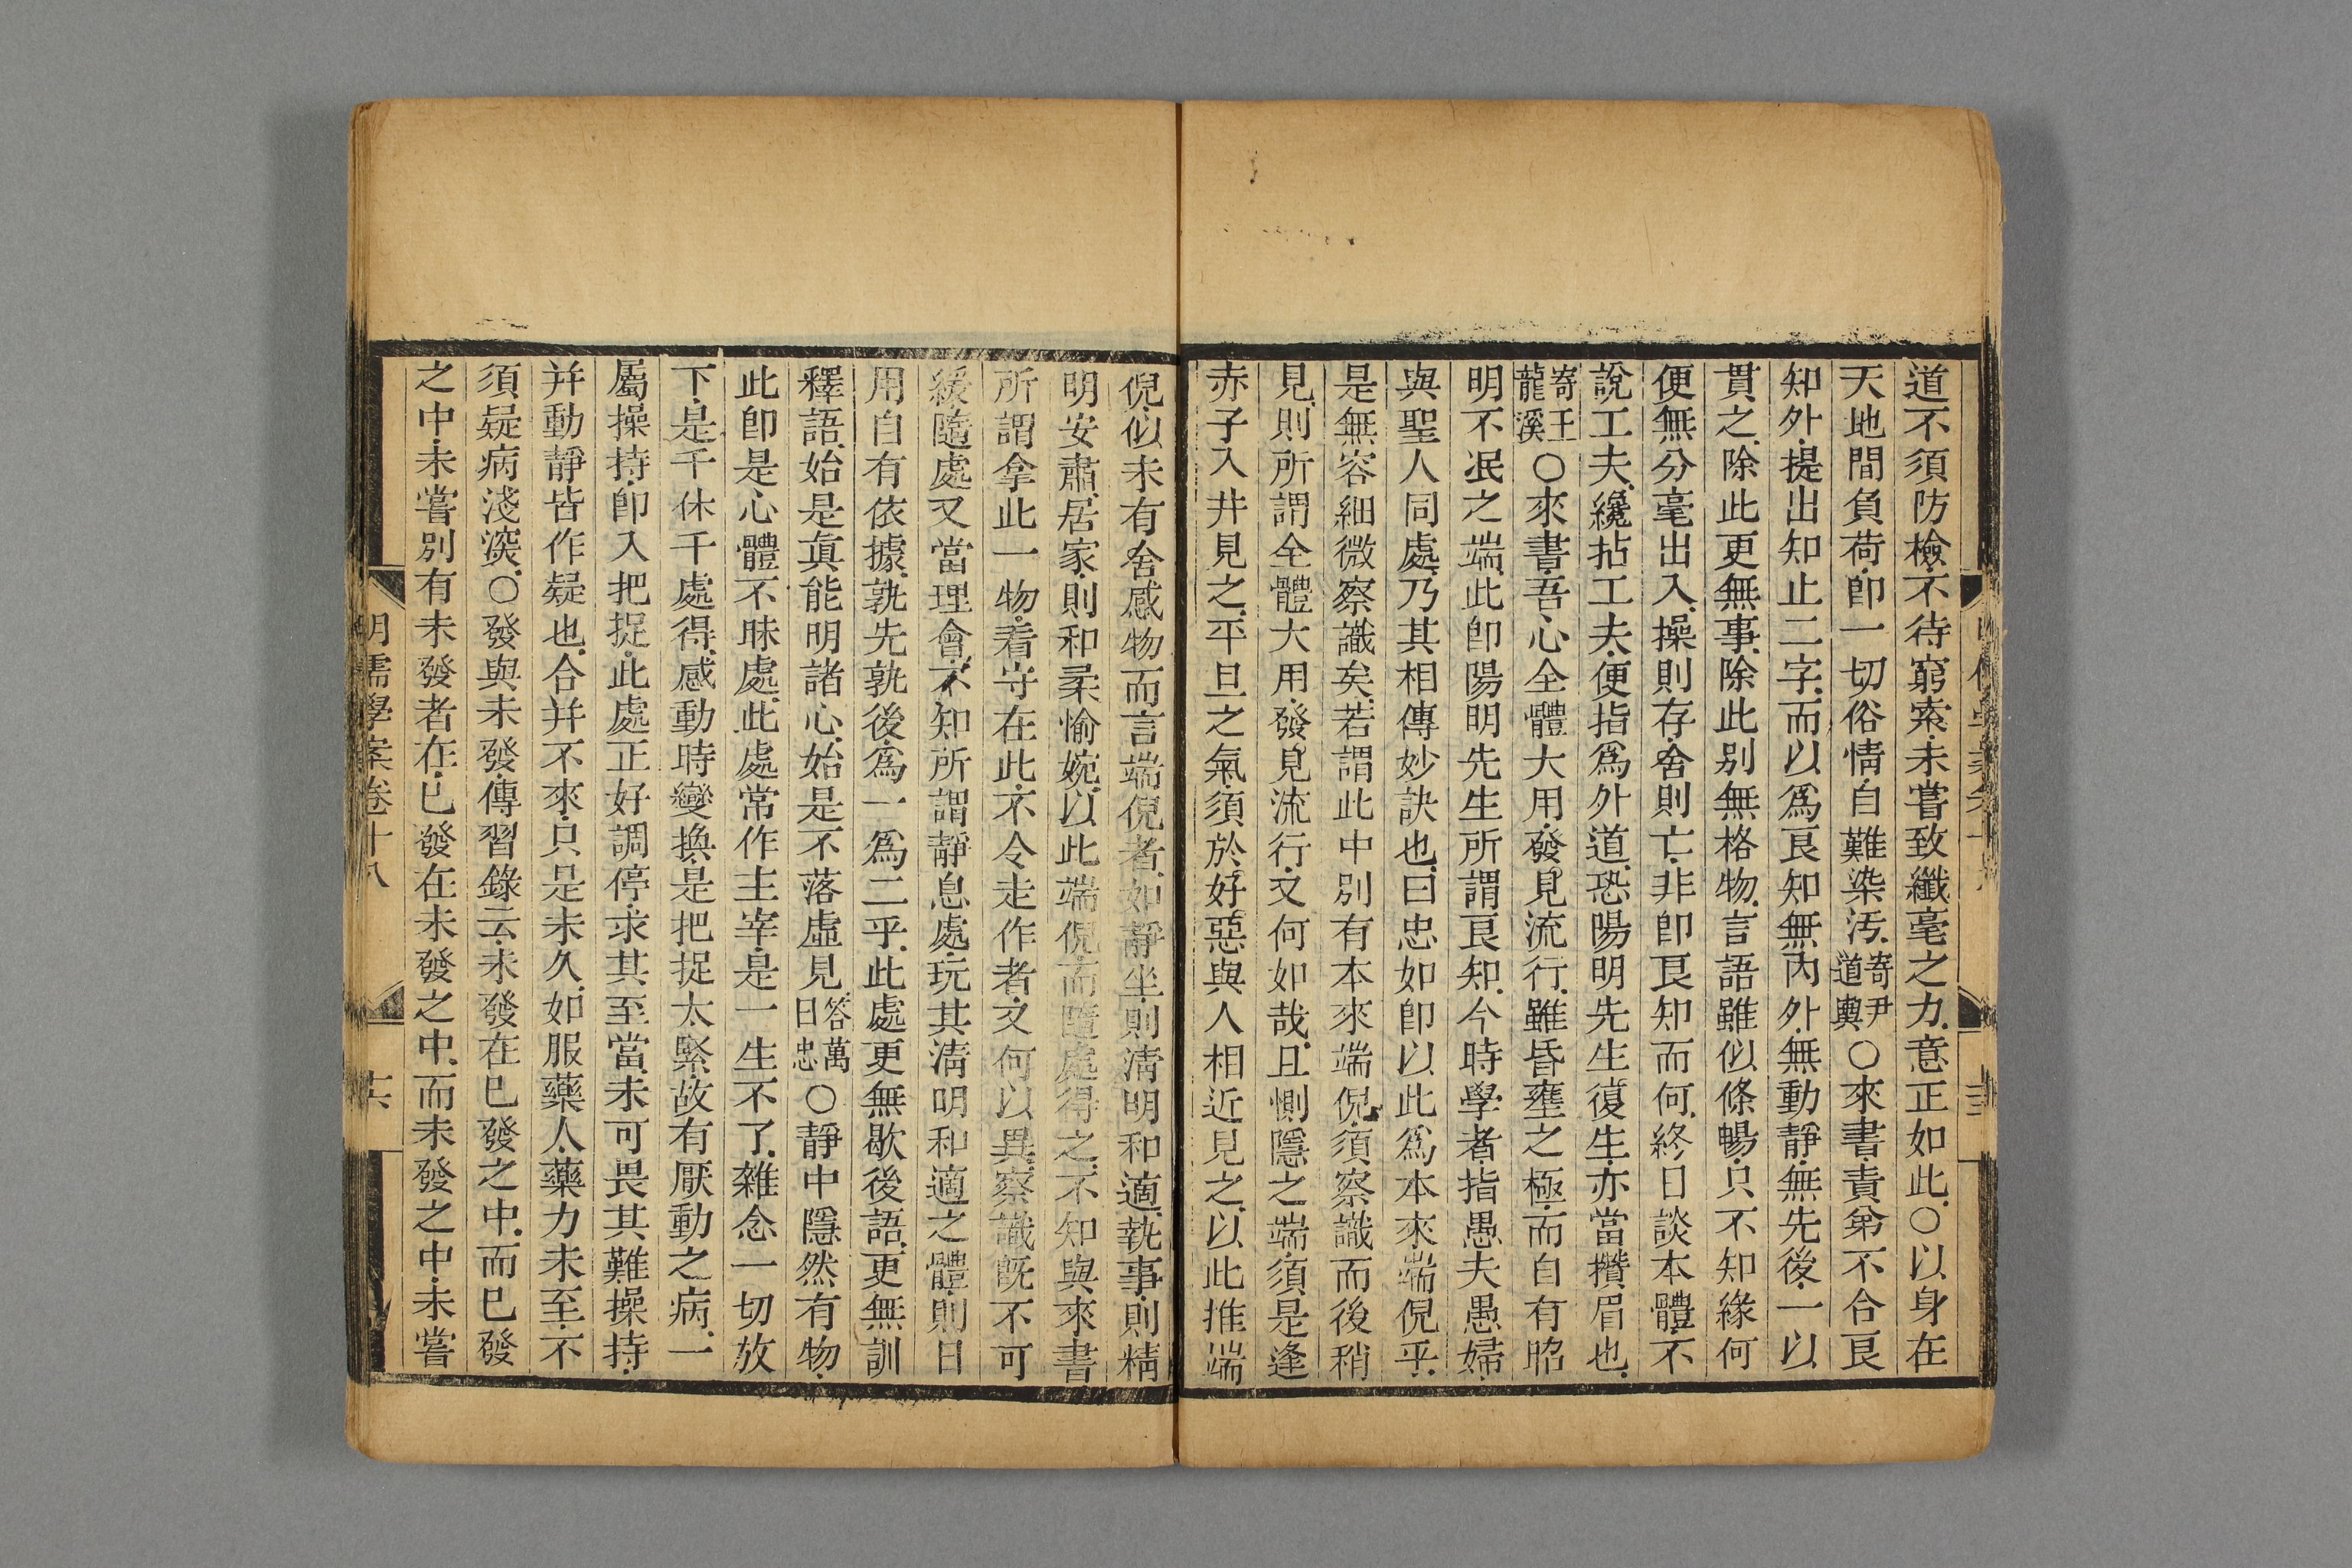 道不須防檢不待窮索未嘗致纖毫之力意正如此○以身在
天地間負荷卽一切俗情自難染汚寄尹道輿○來書責弟不合良
知外提出知止二字而以爲良知無內外無動靜無先後一以
貫之除此更無事除此別無格物言語雖似條暢只不知緣何
便無分毫出入操則存舍則亡非卽良知而何終日談本體不
說工夫纔拈工夫便指爲外道恐陽明先生復生亦當攢眉也
寄王龍溪○來書吾心全體大用發見流行雖昏壅之極而自有昭
明不泯之端此卽陽明先生所謂良知今時學者指愚夫愚婦
與聖人同處乃其相傳妙訣也曰忠如卽以此爲本來端倪乎
是無容細微察識矣若謂此中別有本來端倪須察識而後稍
見則所謂全體大用發見流行又何如哉且惻隱之端須是逢
赤子入井見之平旦之氣須於好惡與人相近見之以此推端
倪似未有舍感物而言端倪者如靜坐則淸明和適執事則精
明安肅居家則和柔愉婉以此端倪而隨處得之不知與來書
所謂拿此一物看守在此不令走作者又何以異察識旣不可
緩隨處又當理會不知所謂靜息處玩其淸明和適之體則日
用自有依據孰先孰後爲一爲二乎此處更無歇後語更無訓
釋語始是眞能明諸心始是不落虛見答萬曰忠○靜中隱然有物
此卽是心體不昧處此處常作主宰是一生不了雜念一切放
下是千休千處得感動時變換是把捉太緊故有厭動之病一
屬操持卽入把捉此處正好調停求其至當未可畏其難操持
幷動靜皆作疑也合幷不來只是未久如服藥人藥力未至不
須疑病淺深○發與未發傳習錄云未發在已發之中而已發
之中未嘗別有未發者在已發在未發之中而未發之中未嘗
明儒學案卷十八